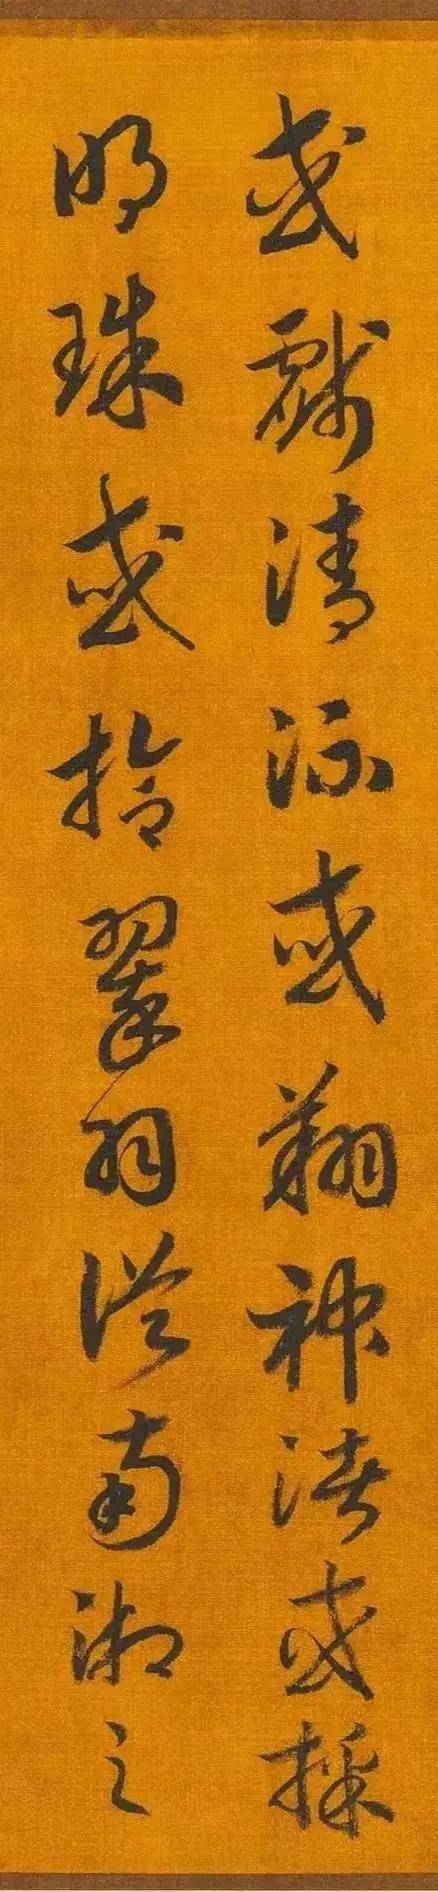 或戲清流或翔神渚或採
明珠或拾翠羽從南湘之